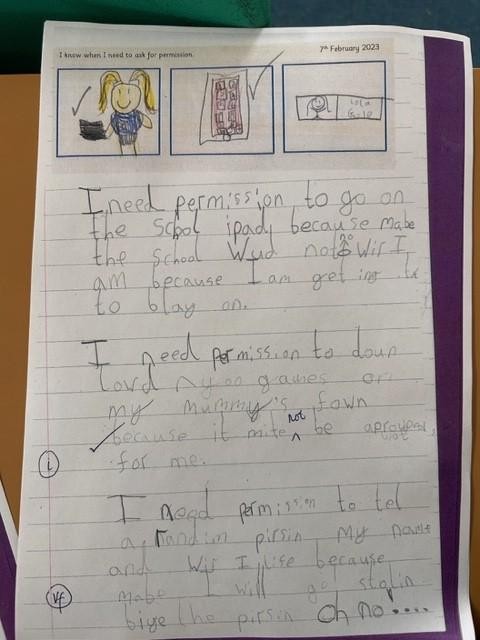 I know when I need to ask for permission. 7th February 2023
I need permission to go on
the school ipad because mabe
the school Wud not no Wir I
am because I am get ing it
to blay on.
I need permission to doun
lovd nyoo games on
my mummy's fown
because it mite not be
for me.
i
I need permission to tel
a randim pirsin my name
and Wir I life because
mabe I will get stolin
biye the pirsin Oh no....
vf